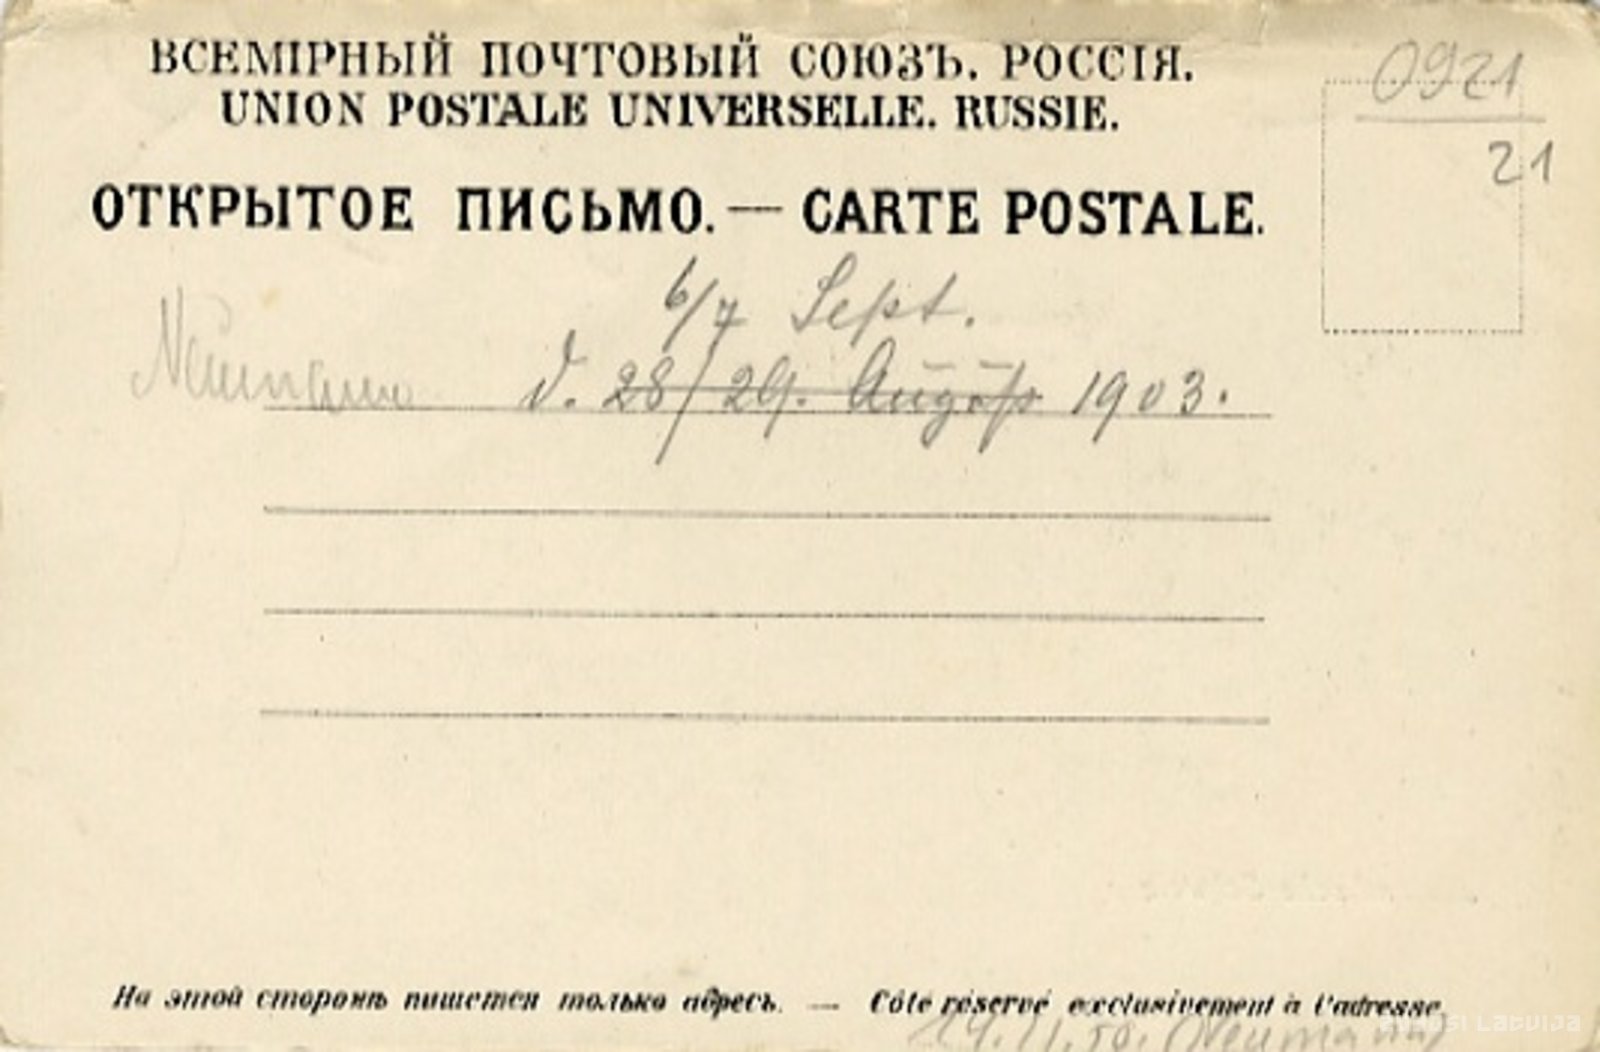 ВСЕМІРНЫЙ ПОЧТОВЫЙ СОЮЗЪ. РОССІЯ.
UNION POSTALE UNIVERSELLE. RUSSIE.
0921
21
ОТКРЫТОЕ ПИСЬМО. — CARTE POSTALE.
6/7 Sept.
Neumann d. 28/29. August 1903.
На этой сторонѣ пишется только адресъ. — Côté réservé exclusivement à l'adresse.
Neumann
zudusi latvija